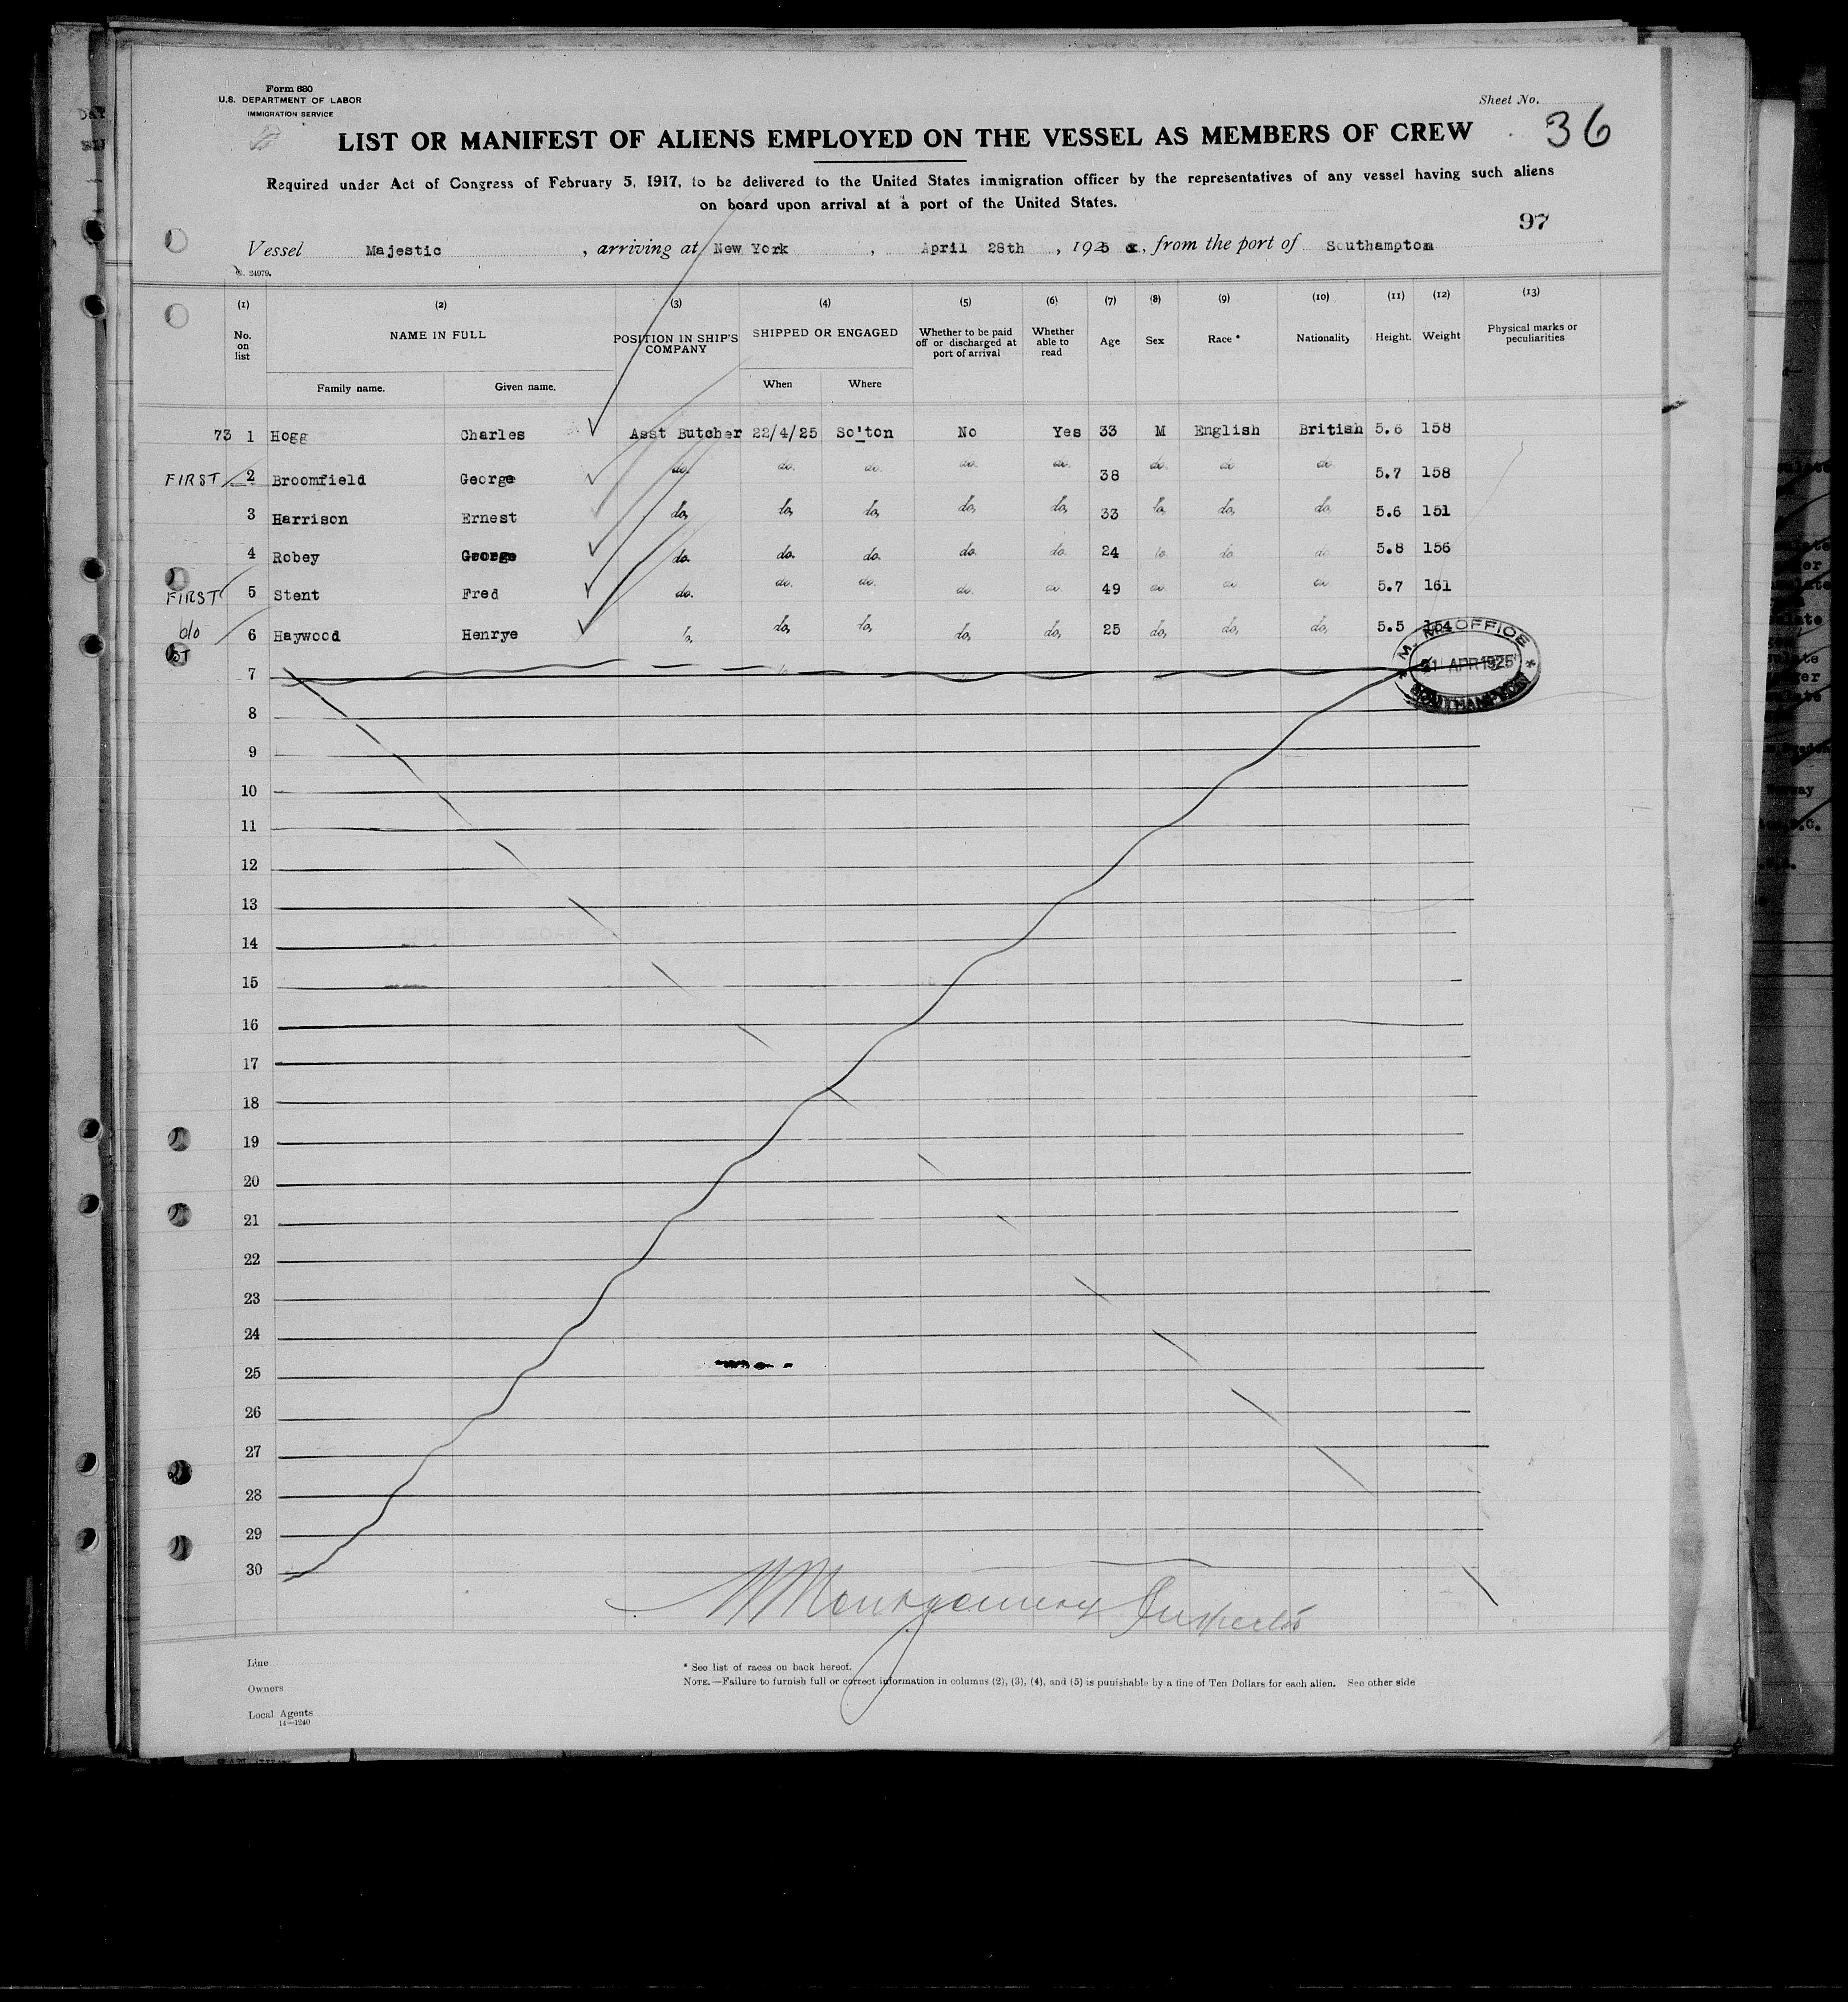 Form 680
U.S. DEPARTMENT OF LABOR
IMMIGRATION SERVICE
Sheet No.
36
LIST OR MANIFEST OF ALIENS EMPLOYED ON THE VESSEL AS MEMBERS OF CREW
Required under Act of Congress of February 5, 1917, to be delivered to the United States immigration officer by the representatives of any vessel having such aliens
on board upon arrival at a port of the United States.
97
Vessel Majestic, arriving at New York, April 28th, 1925, from the port of Southampton
24979
(1) (2) (3) (4) (5) (6) (7) (8) (9) (10) (11) (12) (13)
No. on list NAME IN FULL POSITION IN SHIP'S COMPANY SHIPPED OR ENGAGED Whether to be paid off or discharged at port of arrival Whether able to read Age Sex Race * Nationality Height. Weight Physical marks or peculiarities
Family name. Given name. When Where
73 1 Hogg Charles Asst Butcher 22/4/25 So'ton No Yes 33 M English British 5.6 158
FIRST 2 Broomfield George do. do. do. do. do. 38 do. do do. 5.7 158
3 Harrison Ernest do, do, do, do, do, 33 do, do, do, 5.6 151
4 Robey George do. do. do. do. do. 24 do. do. do. 5.8 156
FIRST 5 Stent Fred do. do. do. do. do. 49 do. do do 5.7 161
6 Haywood Henrye do, do, do, do, do, 25 do, do, do, 5.5 154
M. M. OFFICE
21 APR 1925
SOUTHAMPTON
7
8
9
10
11
12
13
14
15
16
17
18
19
20
21
22
23
24
25
26
27
28
29
30
Montgomery Inspector
Line
Owners
Local Agents
14—1240
* See list of races on back hereof.
NOTE.—Failure to furnish full or correct information in columns (2), (3), (4), and (5) is punishable by a fine of Ten Dollars for each alien. See other side